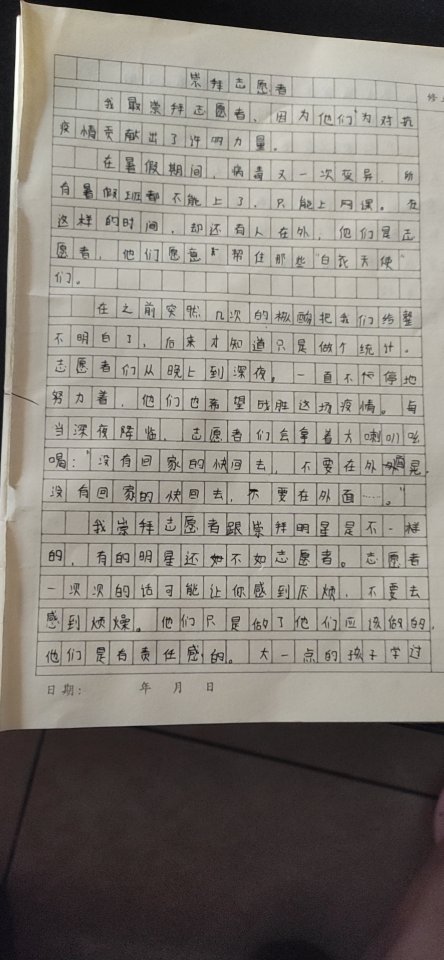 崇拜志愿者
我最崇拜志愿者，因为他们为对抗
疫情贡献出了许多力量。
在暑假期间，病毒又一次变异，所
有暑假班都不能上了，只能上网课。在
这样的时间，却还有人在外，他们是志
愿者，他们愿意帮住那些“白衣天使”
们。
在之前突然几次的核酸把我们给整
不明白了，后来才知道只是做个统计。
志愿者们从晚上到深夜。一直不停地
努力着，他们也希望战胜这场疫情。每
当深夜降临，志愿者们会拿着大喇叭吆
喝：“没有回家的快回去，不要在外晃，
没有回家的快回去，不要在外面……。”
我崇拜志愿者跟崇拜明星是不一样
的，有的明星还不如志愿者。志愿者
一次次的话可能让你感到厌烦，不要去
感到烦燥。他们只是做了他们应该做的，
他们是有责任感的。大一点的孩子学过
日期： 年 月 日